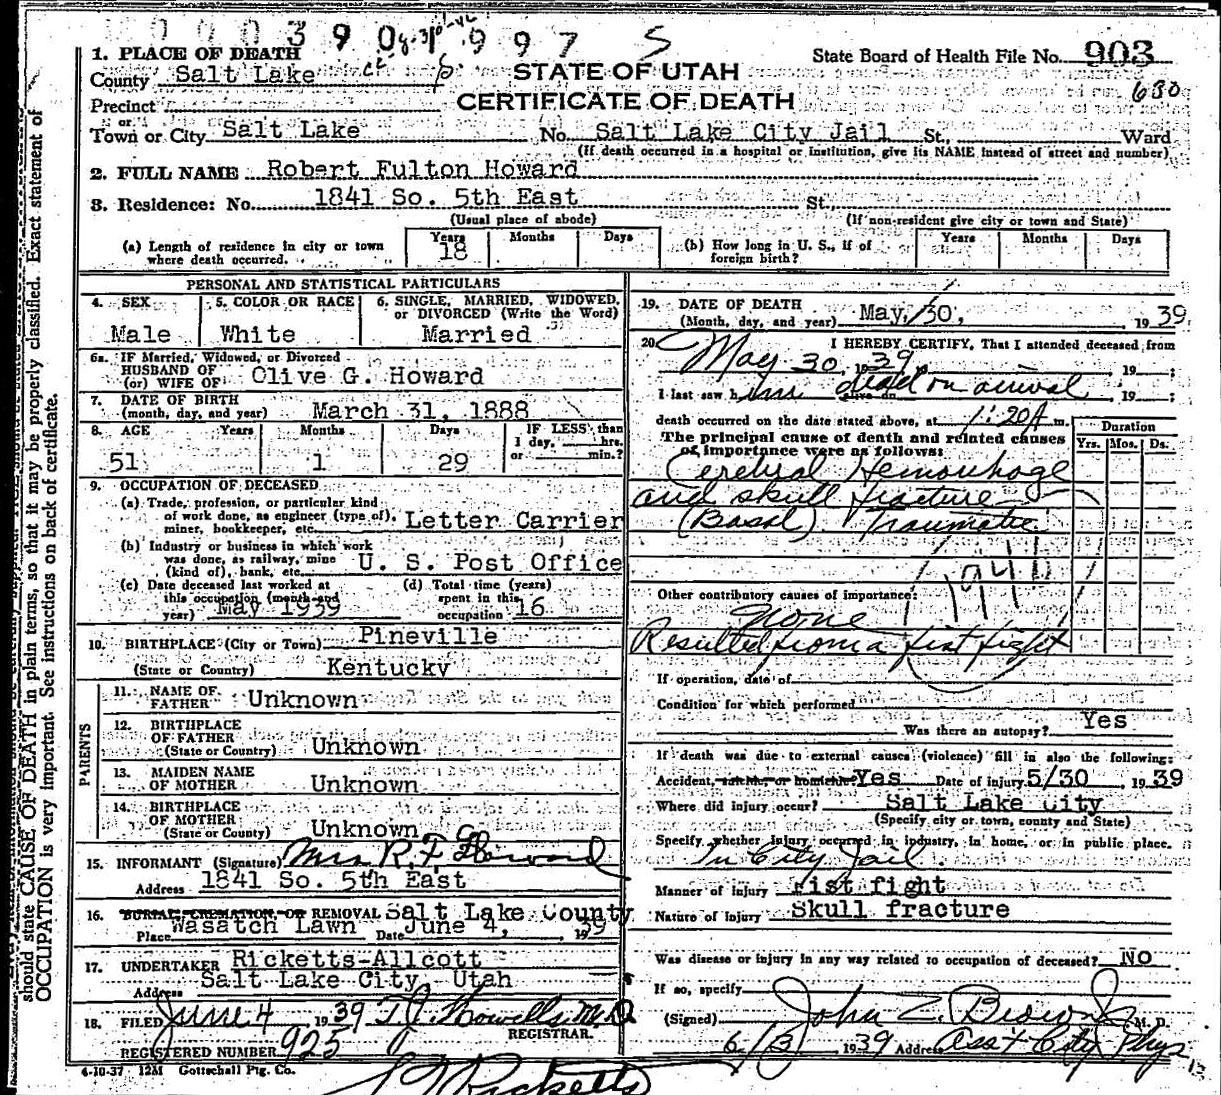 0 0 0 3 9 0 9 9 7 5
1. PLACE OF DEATH
State Board of Health File No. 903
County Salt Lake
STATE OF UTAH
630
Precinct
CERTIFICATE OF DEATH
or
Town or City Salt Lake No. Salt Lake City Jail St., Ward
(If death occurred in a hospital or institution, give its NAME instead of street and number)
2. FULL NAME Robert Fulton Howard
3. Residence: No. 1841 So. 5th East St.
(Usual place of abode) (If non-resident give city or town and State)
(a) Length of residence in city or town where death occurred. Years 18 Months Days
(b) How long in U. S., if of foreign birth? Years Months Days
PERSONAL AND STATISTICAL PARTICULARS
4. SEX 5. COLOR OR RACE 6. SINGLE, MARRIED, WIDOWED, or DIVORCED (Write the Word)
Male White Married
6a. IF Married, Widowed, or Divorced
HUSBAND OF
(or) WIFE OF Olive G. Howard
7. DATE OF BIRTH
(month, day, and year) March 31, 1888
8. AGE Years Months Days IF LESS than 1 day, hrs. or min.?
51 1 29
9. OCCUPATION OF DECEASED
(a) Trade, profession, or particular kind
of work done, as engineer (type of),
miner, bookkeeper, etc. Letter Carrier
(b) Industry or business in which work
was done, as railway, mine
(kind of), bank, etc. U. S. Post Office
(c) Date deceased last worked at this occupation (month and year) May 1939
(d) Total time (years) spent in this occupation 16
10. BIRTHPLACE (City or Town) Pineville
(State or Country) Kentucky
PARENTS
11. NAME OF FATHER Unknown
12. BIRTHPLACE OF FATHER
(State or Country) Unknown
13. MAIDEN NAME OF MOTHER Unknown
14. BIRTHPLACE OF MOTHER
(State or Country) Unknown
15. INFORMANT (Signature) Mrs R. F. Howard
Address 1841 So. 5th East
16. BURIAL, CREMATION, OR REMOVAL Salt Lake County
Place Wasatch Lawn Date June 4, 1939
17. UNDERTAKER Ricketts-Allcott
Address Salt Lake City, Utah
18. FILED June 4 1939 T. J. Howells M.D.
REGISTRAR.
REGISTERED NUMBER 925
4-10-37 12M Gottschall Ptg. Co.
19. DATE OF DEATH
(Month, day, and year) May, 30, 1939
20. I HEREBY CERTIFY, That I attended deceased from
May 30 1939, 19 ;
I last saw him alive on dead on arrival, 19 ;
death occurred on the date stated above, at 1:20A m.
The principal cause of death and related causes
of importance were as follows:
Duration
Yrs. Mos. Ds.
Cerebral Hemorrhage
and skull fracture
(Basal) Traumatic
Other contributory causes of importance:
None
Resulted from a fist fight
If operation, date of
Condition for which performed
Was there an autopsy? Yes
If death was due to external causes (violence) fill in also the following:
Accident, suicide, or homicide Yes Date of injury 5/30, 1939
Where did injury occur? Salt Lake City
(Specify city or town, county and State)
Specify whether injury occurred in industry, in home, or in public place.
In City Jail.
Manner of injury Fist fight
Nature of injury Skull fracture
Was disease or injury in any way related to occupation of deceased? No
If so, specify
(Signed) John Z. Brown Jr M. D.
6/3 1939 Address Ass't City Phys
should state CAUSE OF DEATH in plain terms, so that it may be properly classified. Exact statement of
OCCUPATION is very important. See instructions on back of certificate.